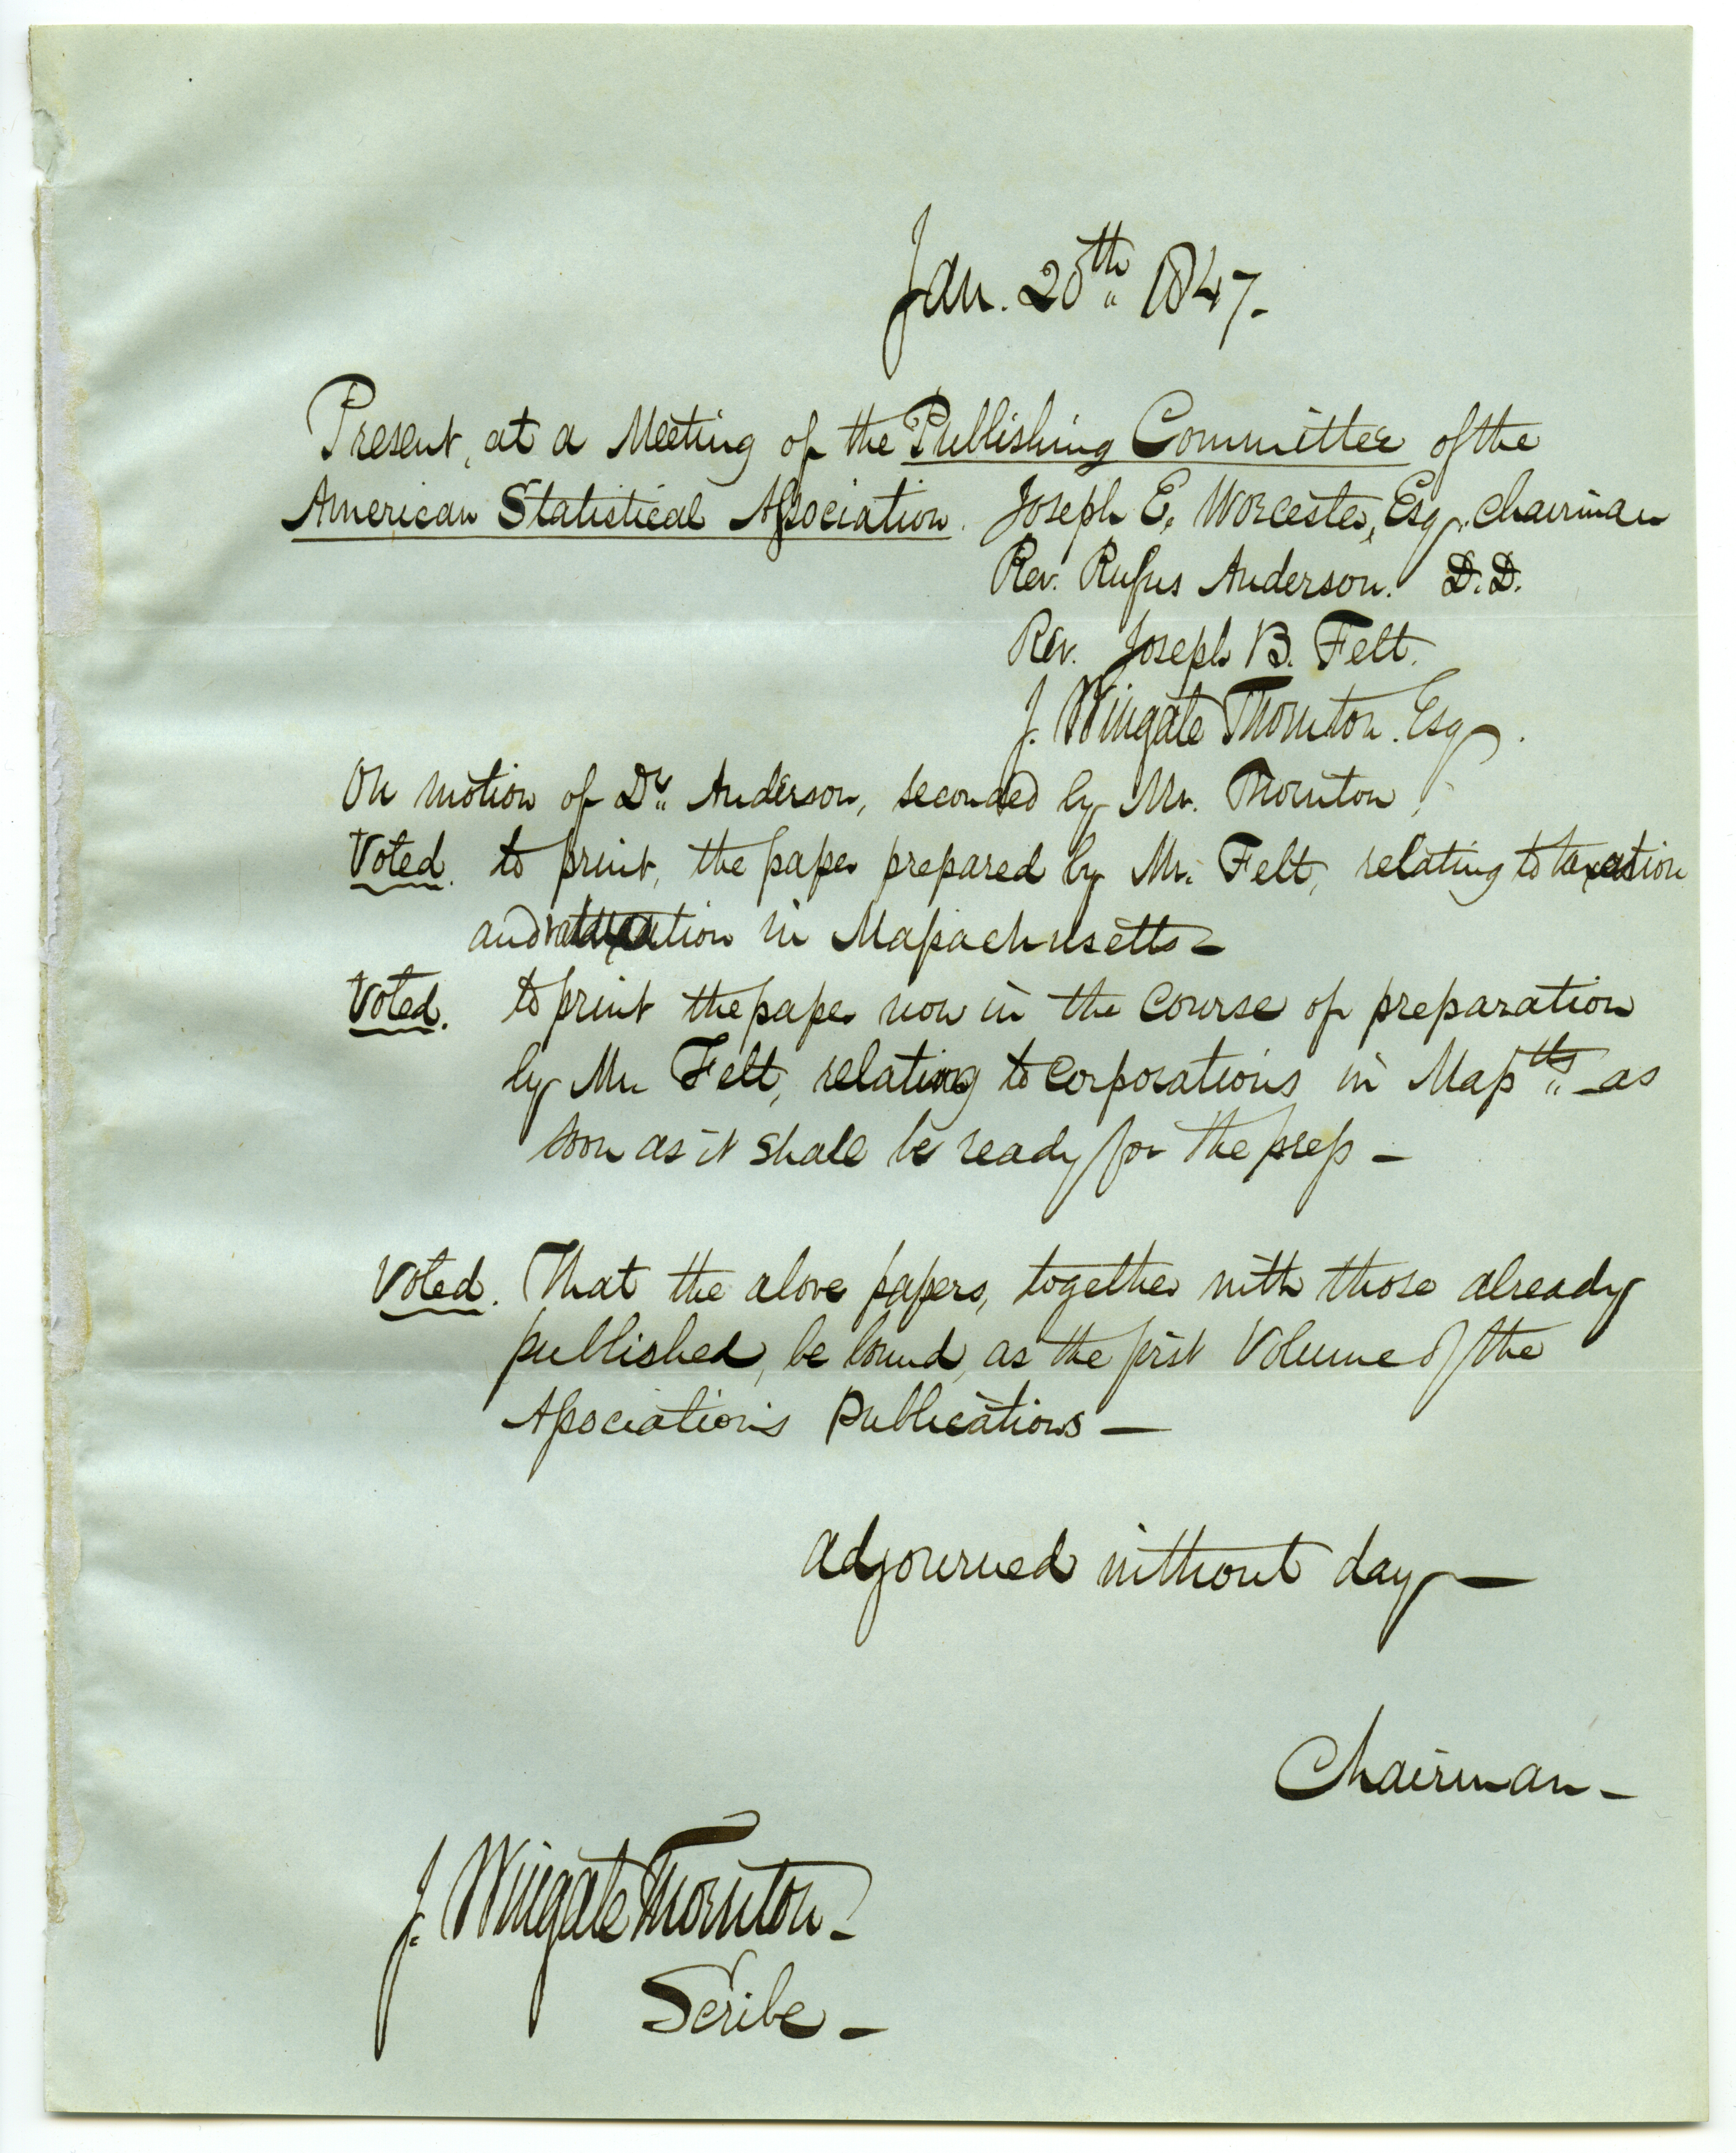 Jan. 20th 1847.-
Present, at a Meeting of the Publishing Committee of the
American Statistical Association. Joseph E. Worcester, Esq. Chairman
Rev. Rufus Anderson. D.D.
Rev. Joseph B. Felt.
J. Wingate Thornton. Esq.
On motion of Dr. Anderson, seconded by Mr. Thornton,
Voted. to print, the paper prepared by Mr. Felt, relating to taxation
and valuation in Massachusetts-
Voted. to print the paper now in the course of preparation
by Mr Felt, relating to Corporations in Massts. as
soon as it shall be ready for the press -
Voted. That the above papers, together with those already
published, be bound, as the first Volume of the
Association's Publications -
adjourned without day -
Chairman -
J. Wingate Thornton -
Scribe -